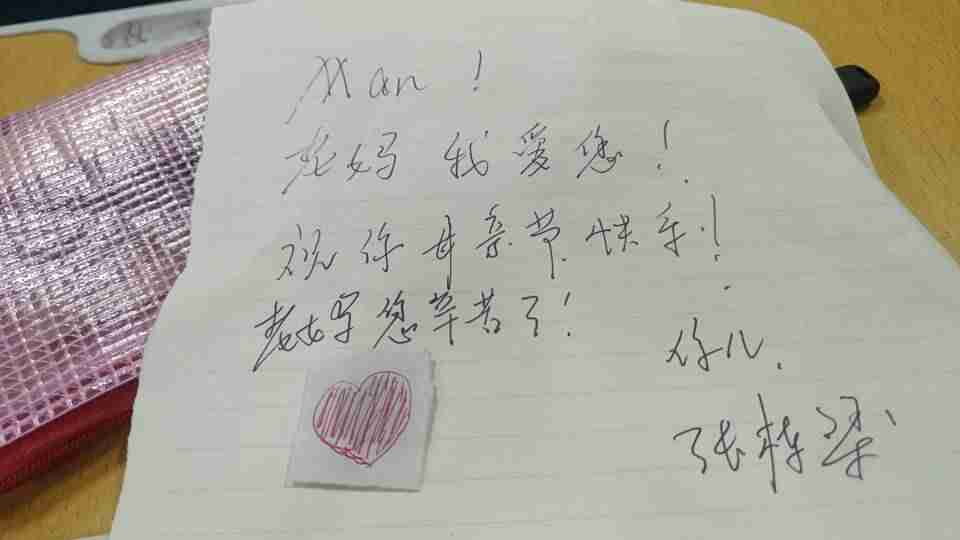 Man!
老妈 我爱您!
祝你母亲节快乐!
老妈您辛苦了!
你儿.
张栋梁